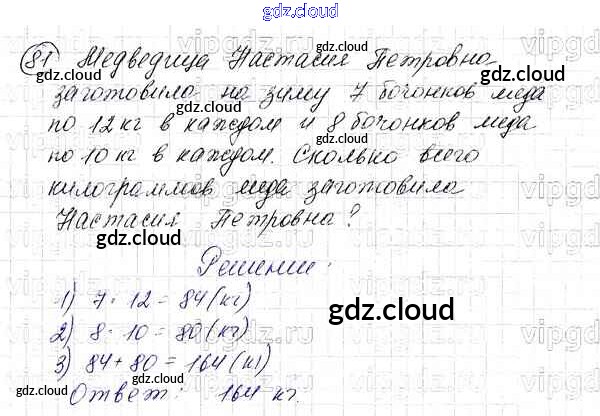 gdz.cloud
81 Медведица Настасия Петровна
заготовила на зиму 7 бочонков меда
по 12 кг в каждом и 8 бочонков меда
по 10 кг в каждом. Сколько всего
килограммов меда заготовила
Настасия Петровна?
Решение:
1) 7 · 12 = 84 (кг)
2) 8 · 10 = 80 (кг)
3) 84 + 80 = 164 (кг)
Ответ: 164 кг.
gdz.cloud
gdz.cloud
gdz.cloud
gdz.cloud
gdz.cloud
gdz.cloud
gdz.cloud
gdz.cloud